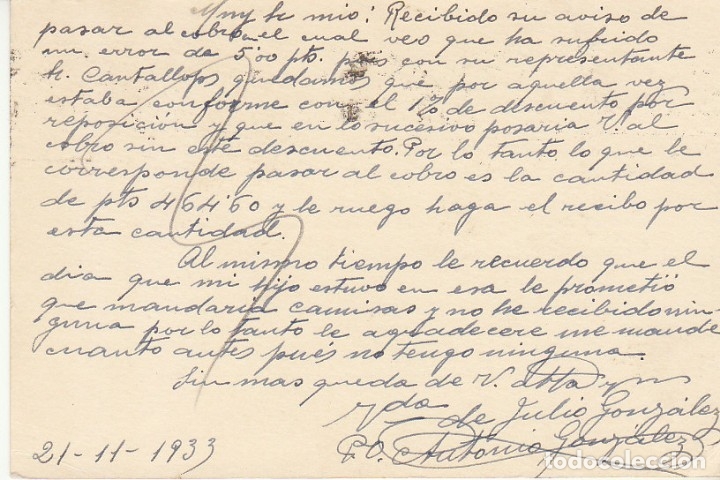 Muy Sr mio: Recibido su aviso de
pasar al cobro, el cual veo que ha sufrido
un error de 5'00 pts. pues con su representante
Sr. Cantallops quedamos que por aquella vez
estaba conforme con el 1% de descuento por
reposición y que en lo sucesivo pasaria V. al
cobro sin este descuento. Por lo tanto, lo que le
corresponde pasar al cobro es la cantidad
de pts 464'60 y le ruego haga el recibo por
esta cantidad.
Al mismo tiempo le recuerdo que el
dia que mi hijo estuvo en esa le prometió
que mandaria camisas y no he recibido nin-
guna por lo tanto le agradecere me mande
cuanto antes pués no tengo ninguna.
Sin mas queda de V. atta y
Vda de Julio González
21-11-1933 P.O. Antonio González
todocoleccion